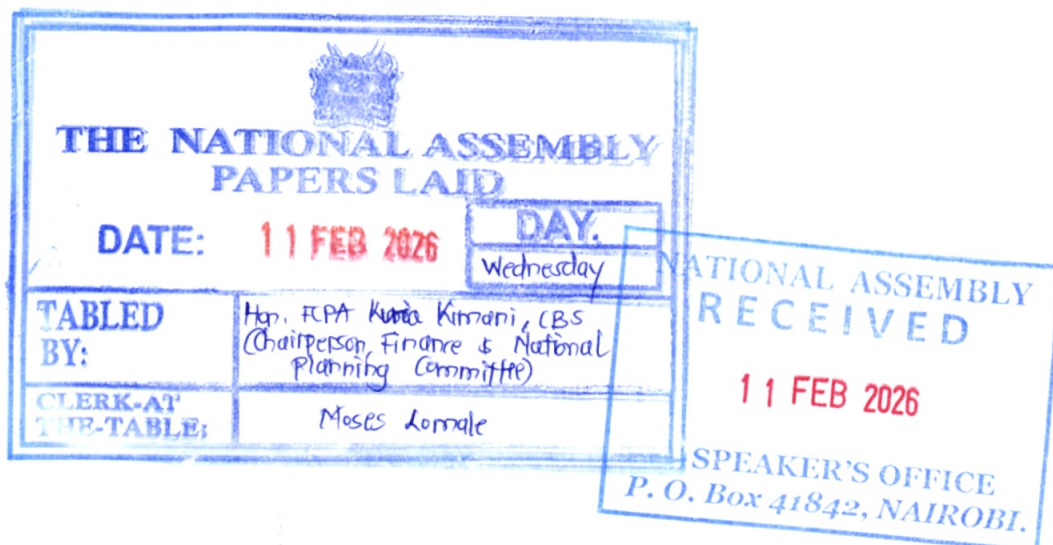 THE NATIONAL ASSEMBLY
PAPERS LAID
DATE: 11 FEB 2026
DAY.
Wednesday
TABLED
BY:
Hon. FCPA Kuria Kimani, CBS
(Chairperson, Finance & National
Planning Committee)
CLERK-AT
THE-TABLE:
Moses Lomale
NATIONAL ASSEMBLY
RECEIVED
11 FEB 2026
SPEAKER'S OFFICE
P. O. Box 41842, NAIROBI.